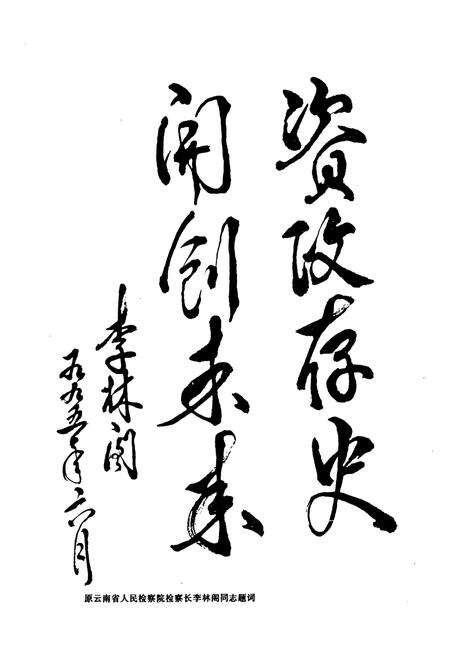 資政存史
開創未来
李林阁
一九九五年六月
原云南省人民检察院检察长李林阁同志题词